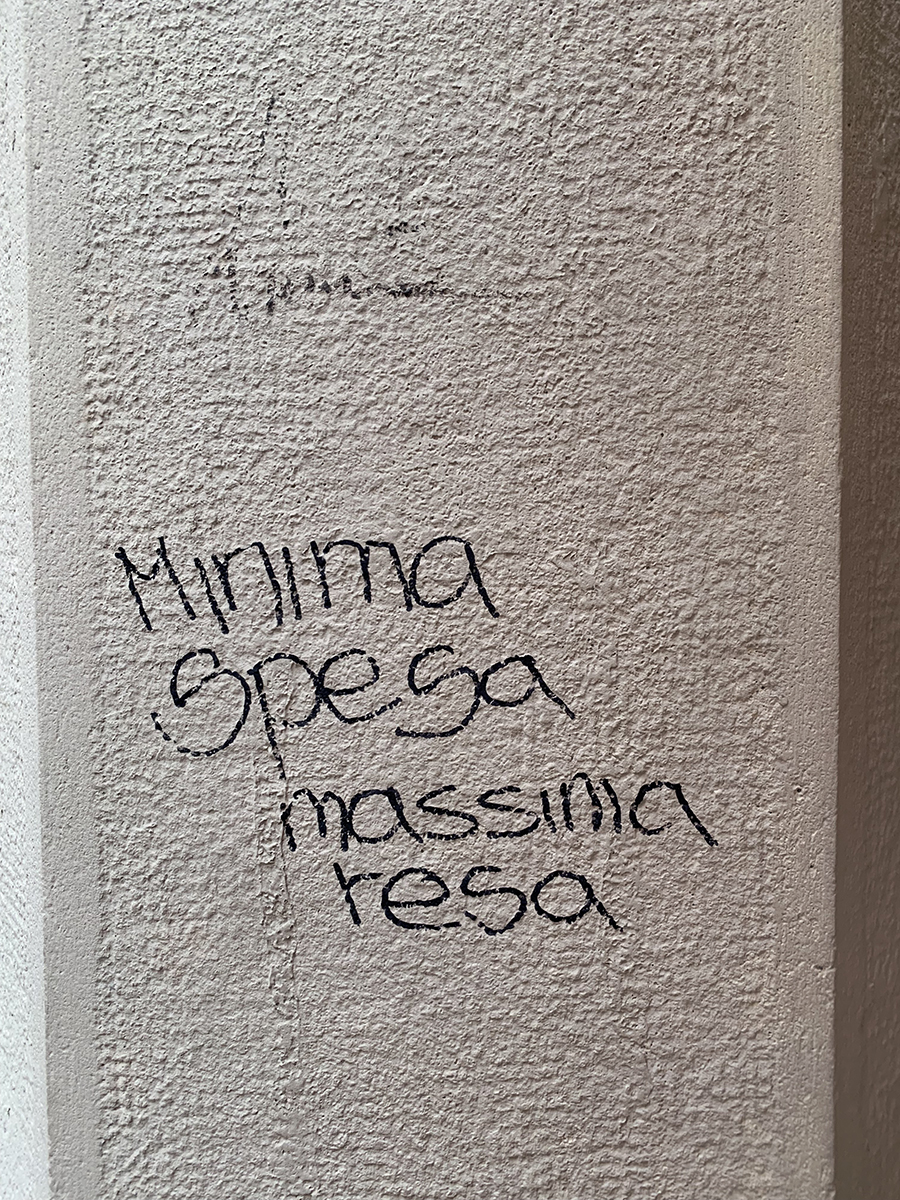 Minima
spesa
massima
resa